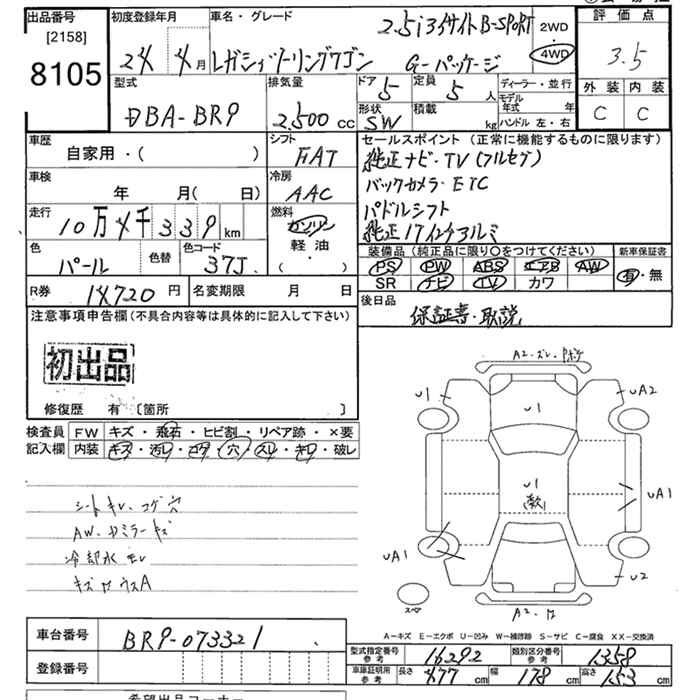 出品番号
[2158]
8105
初度登録年月
24年4月
車名・グレード
2.5i アイサイト B-SPORT
レガシィツーリングワゴン G-パッケージ
2WD
4WD
評価点
3.5
外装 内装
C C
型式
DBA-BR9
排気量
2,500 cc
ドア 5
定員 5 人
形状 SW
積載 kg
ディーラー・並行
モデル年式 年
ハンドル 左・右
車歴
自家用・( )
シフト
FAT
車検
年 月( 日)
冷房
AAC
走行
10万4千339km
燃料
ガソリン
軽油
( ・ )
色
パール
色替
色コード
37J
R券 14,720円
名変期限 月 日
セールスポイント (正常に機能するものに限ります)
純正ナビ・TV(フルセグ)
バックカメラ・ETC
パドルシフト
純正17インチアルミ
装備品 (純正品に限り○をつけてください)
PS PW ABS エアB AW
SR ナビ TV カワ
新車保証書
有・無
後日品
保証書・取説
注意事項申告欄(不具合内容等は具体的に記入して下さい)
初出品
修復歴 有 [箇所 ]
検査員記入欄
FW キズ・飛石・ヒビ割・リペア跡・×要
内装 キズ・汚レ・コゲ・穴・スレ・キレ・破レ
シートキレ、コゲ穴
AW、ドミラーキズ
冷却水モレ
A2-ズレ・
U1
U1
UA2
U1
UA1
UA1
U2
スペア
A2-
A-キズ E-エクボ U-凹み W-補修跡 S-サビ C-腐食 XX-交換済
車台番号
BR9-073321
登録番号
型式指定番号 参考 16292
類別区分番号 参考 1358
車庫証明用 参考 長さ 477 cm 幅 178 cm 高さ 153 cm
希望出品コーナー